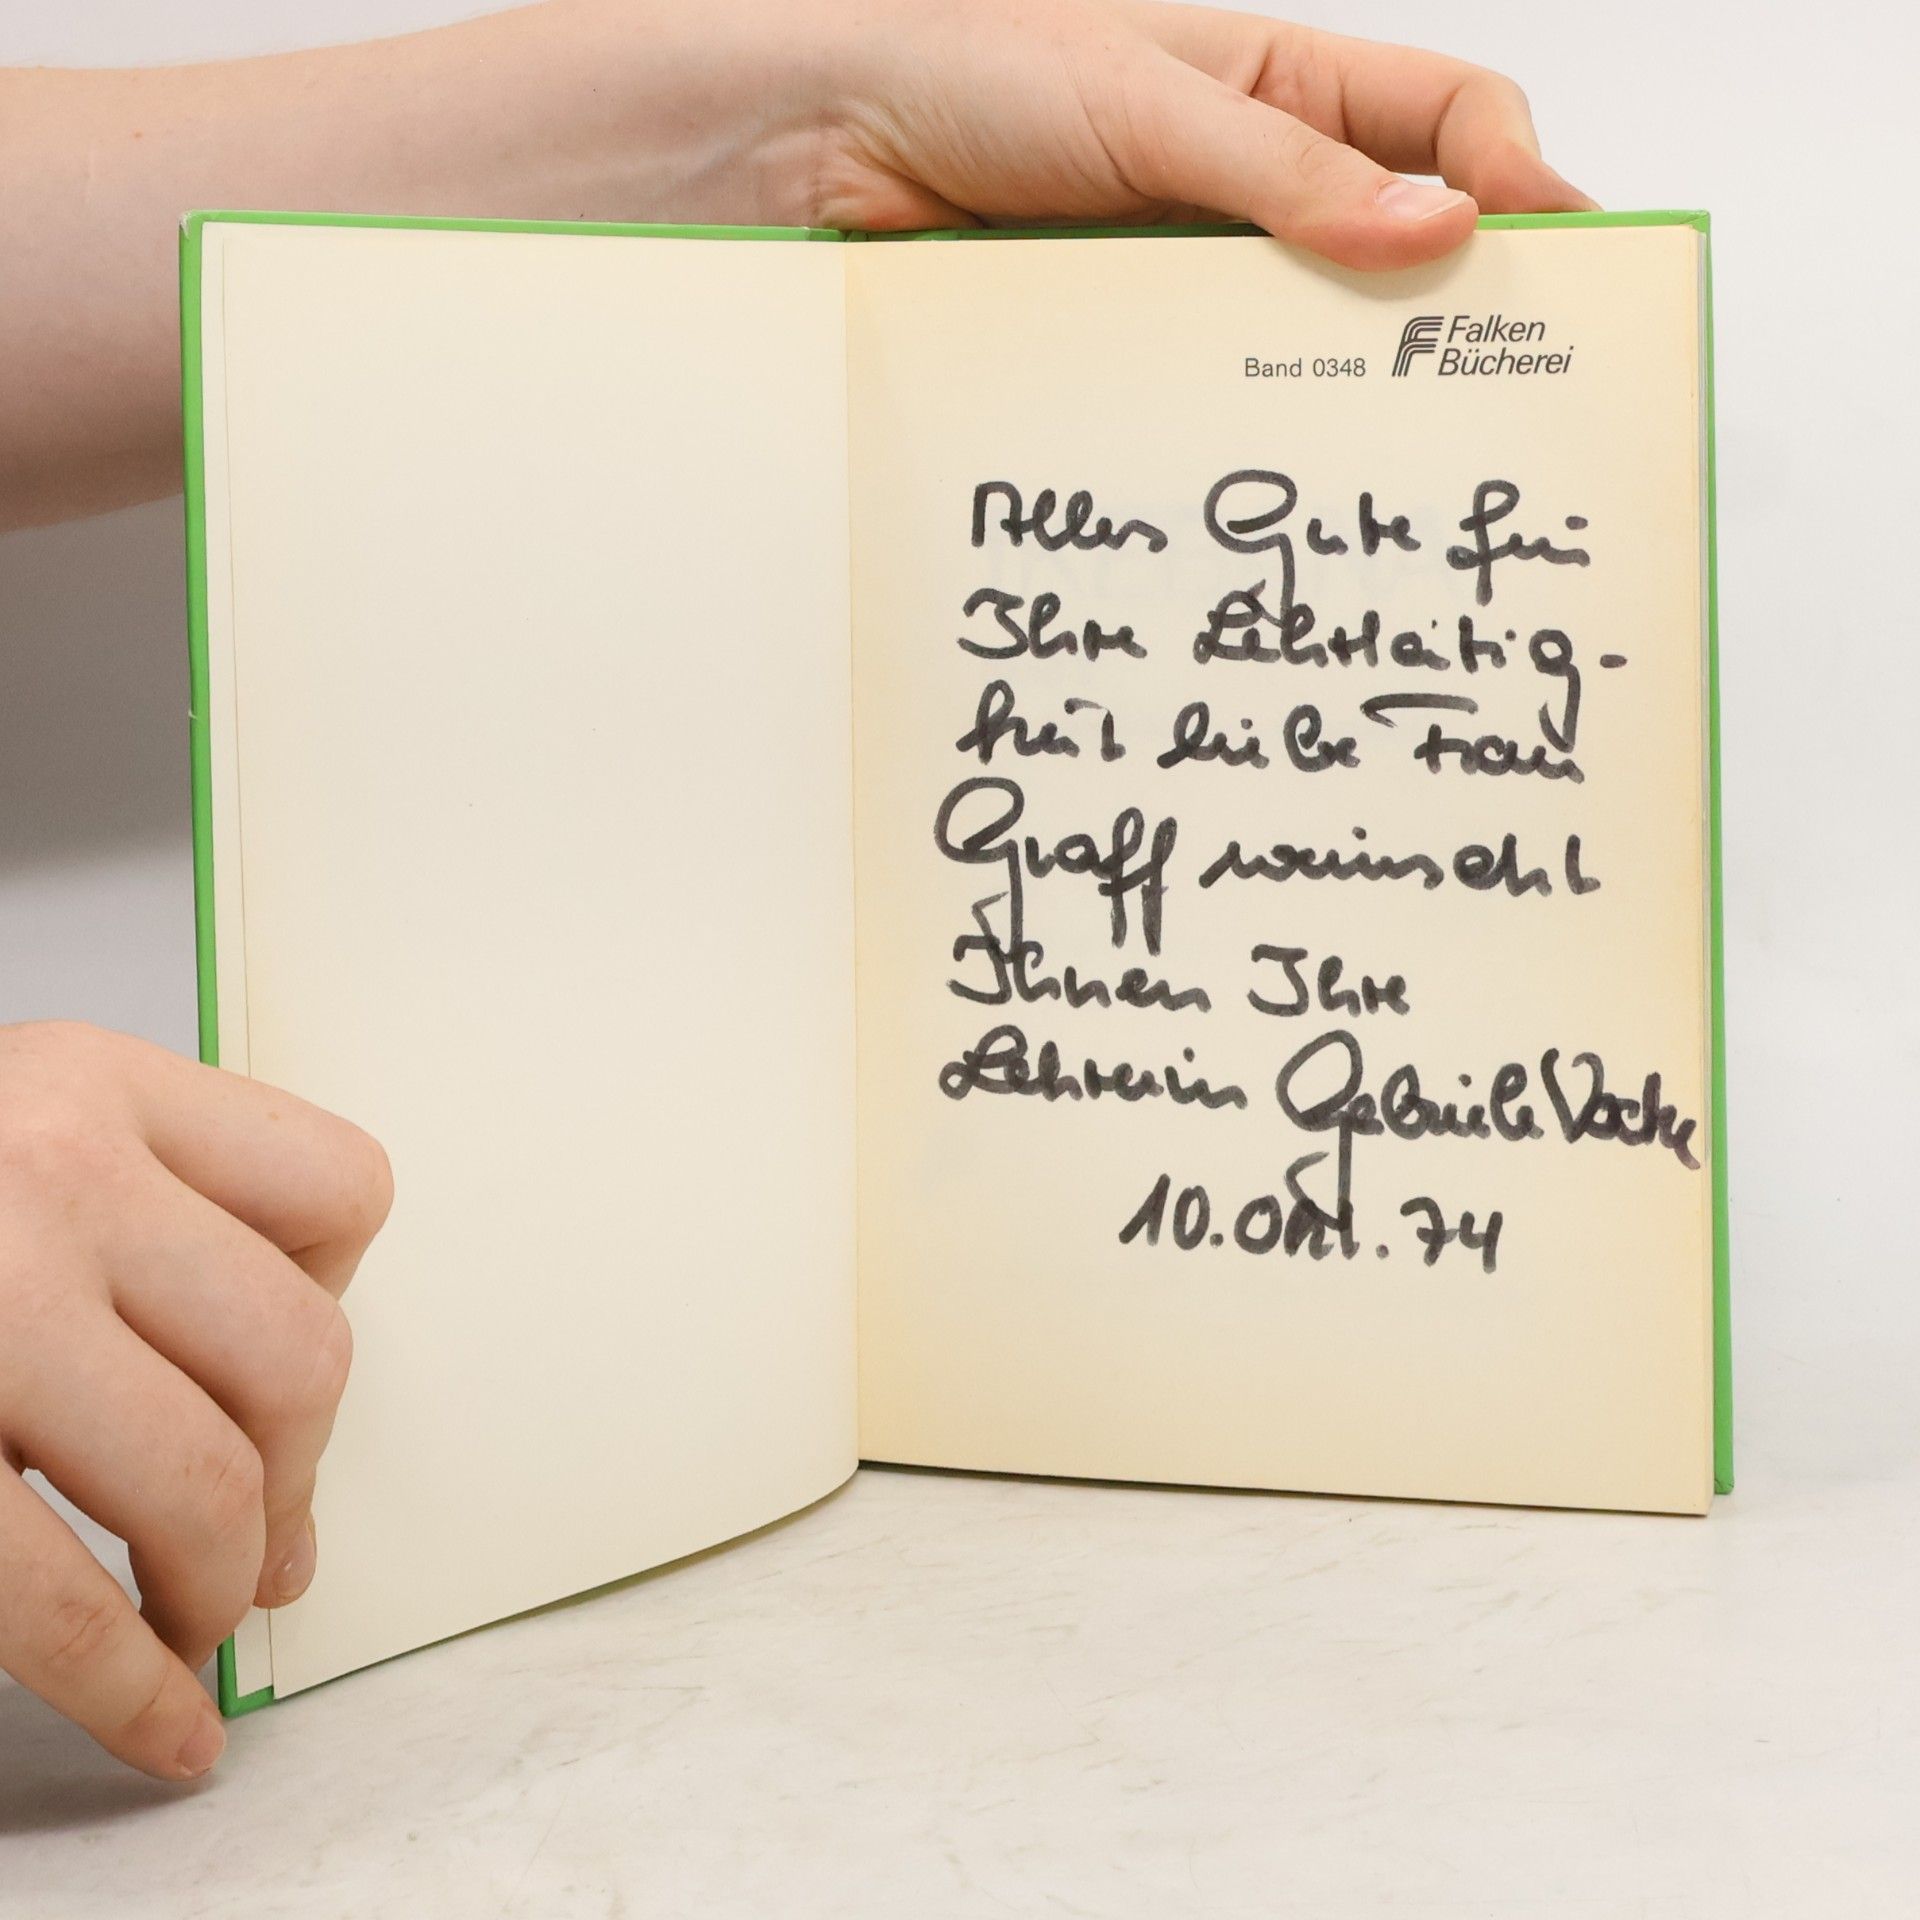 Band 0348
Falken
Bücherei
Alles Gute für
Ihre Lehrtätig-
keit liebe Frau
Graff wünscht
Ihnen Ihre
Lehrerin Gabriele
10. Okt. 74